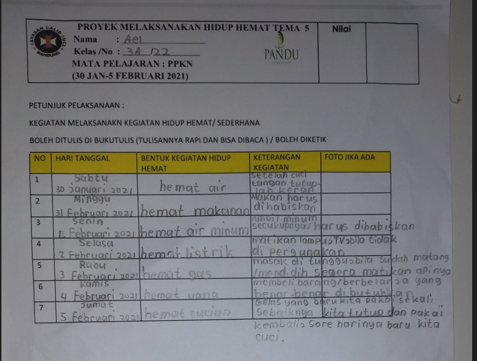 PROYEK MELAKSANAKAN HIDUP HEMAT TEMA 5
Nilai
Nama : Ael
Kelas /No : 3A /22
MATA PELAJARAN : PPKN
(30 JAN-5 FEBRUARI 2021)
PANDU
PETUNJUK PELAKSANAAN :
KEGIATAN MELAKSANAKN KEGIATAN HIDUP HEMAT/ SEDERHANA
BOLEH DITULIS DI BUKUTULIS (TULISANNYA RAPI DAN BISA DIBACA ) / BOLEH DIKETIK
NO HARI TANGGAL BENTUK KEGIATAN HIDUP HEMAT KETERANGAN KEGIATAN FOTO JIKA ADA
1 Sabtu 30 Januari 2021 hemat air setelah cuci tangan tutup lah keran
2 Minggu 31 Februari 2021 hemat makanan Makan harus dihabiskan
3 Senin 1 Februari 2021 hemat air minum ambil minum secukupnya/harus dihabiskan
4 Selasa 2 Februari 2021 hemat listrik matikan lampu/TV bila tidak di pergunakan
5 Rabu 3 Februari 2021 hemat gas masak di tunggu bila sudah matang /mendidih segera matikan apinya
6 Kamis 4 Februari 2021 hemat uang membeli barang/berbelanja yang benar-benar dibutuhkan
7 Jumat 5 Februari 2021 hemat cucian gelas yang baru kita pakai sekali sebaiknya kita tutup dan pakai kembali sore harinya baru kita cuci.